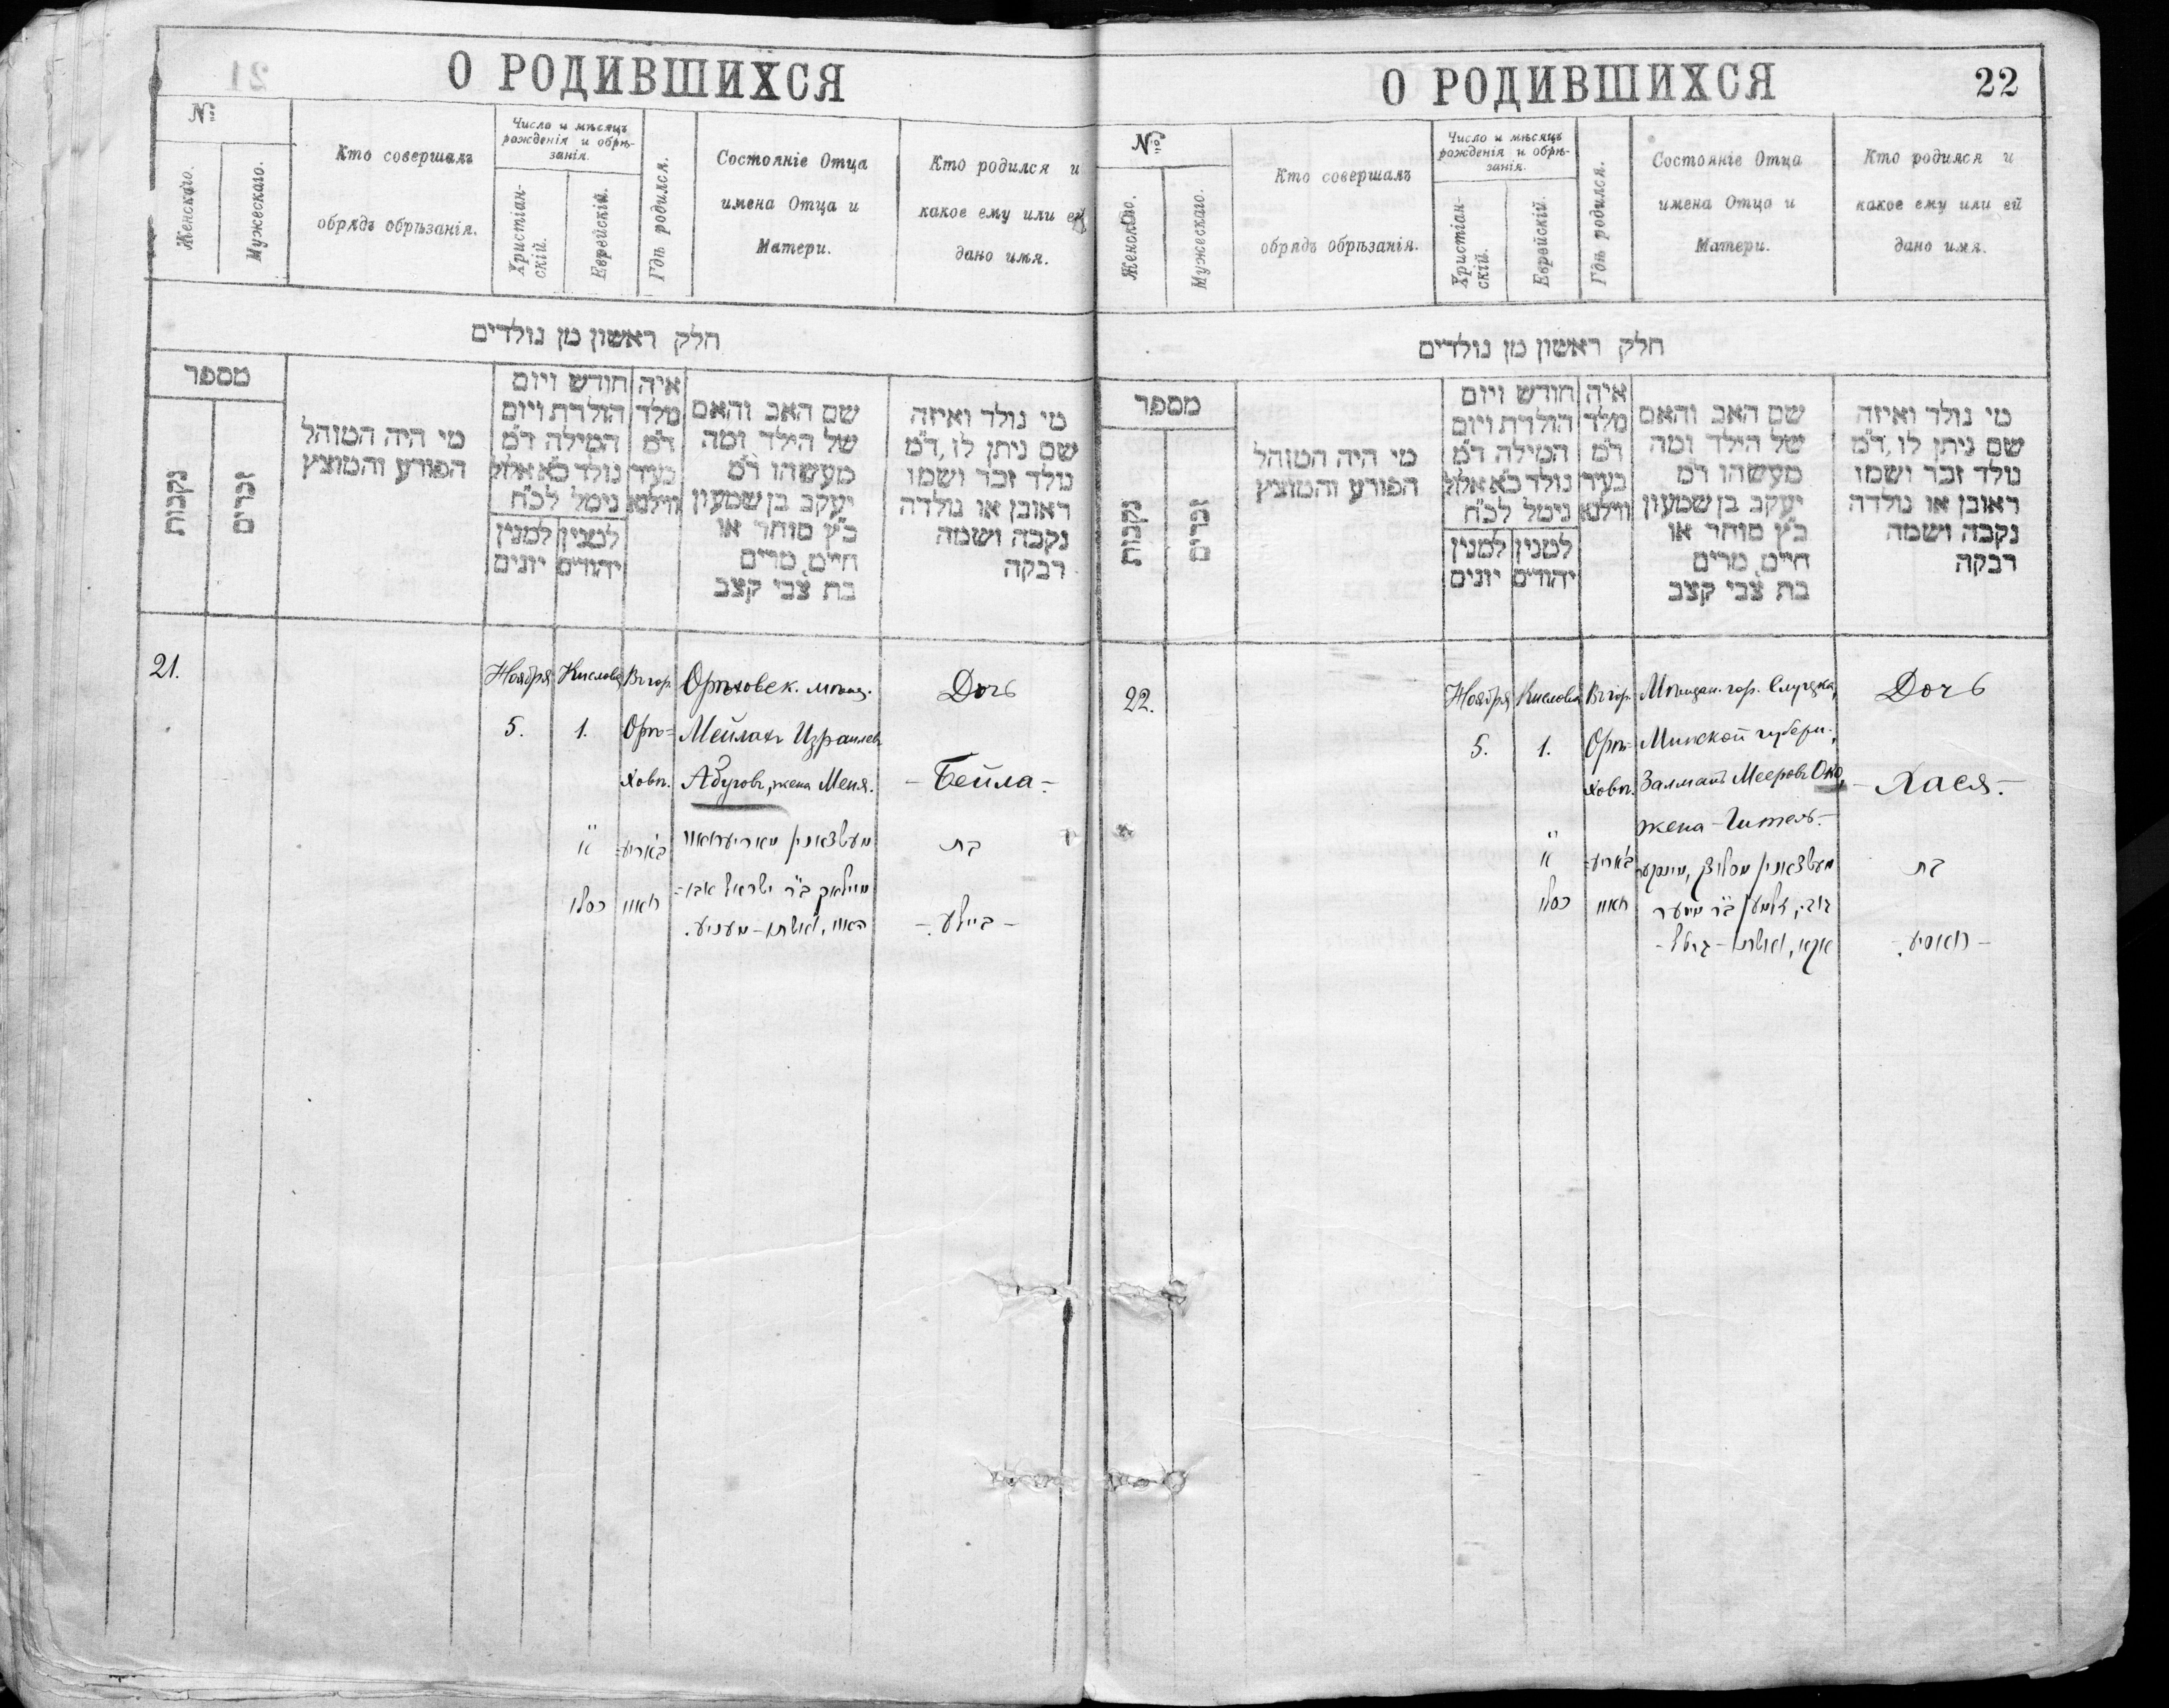 О РОДИВШИХСЯ
№
Женскаго.
Мужескаго.
Кто совершалъ
обрядъ обрѣзанія.
Число и мѣсяцъ
рожденія и обрѣ-
занія.
Христіан-
скій.
Еврейскій.
Гдѣ родился.
Состояніе Отца
имена Отца и
Матери.
Кто родился и
какое ему или ей
дано имя.
חלק ראשון מן נולדים
מספר
נקבות
זכרים
מי היה המוהל
הפורע והמוצץ
חודש ויום
הולדת ויום
המילה ד"מ
נולד כ"א אלול
נימל לכ"ח
למנין למנין
יהודים יונים
איה
מלד
ד"מ
בעיר
ווילנא
שם האב והאם
של הילד ומה
מעשהו ד"מ
יעקב בן שמעון
כ"ץ סוחר או
חי"ט, מרים
בת צבי קצב
מי נולד ואיזה
שם ניתן לו, ד"מ
נולד זכר ושמו
ראובן או נולדה
נקבה ושמה
רבקה
21.
Ноября
5.
Кислова
1.
א
כסלו
Въ гор.
Орѣ-
ховѣ.
Орѣховск. мѣщ.
Мейлахъ Израилевъ
Абуговъ, жена Меня.
Дочь
- Бейла -
בת
- ביילע -
О РОДИВШИХСЯ
22
№
Женскаго.
Мужескаго.
Кто совершалъ
обрядъ обрѣзанія.
Число и мѣсяцъ
рожденія и обрѣ-
занія.
Христіан-
скій.
Еврейскій.
Гдѣ родился.
Состояніе Отца
имена Отца и
Матери.
Кто родился и
какое ему или ей
дано имя.
חלק ראשון מן נולדים
מספר
נקבות
זכרים
מי היה המוהל
הפורע והמוצץ
חודש ויום
הולדת ויום
המילה ד"מ
נולד כ"א אלול
נימל לכ"ח
למנין למנין
יהודים יונים
איה
מלד
ד"מ
בעיר
ווילנא
שם האב והאם
של הילד ומה
מעשהו ד"מ
יעקב בן שמעון
כ"ץ סוחר או
חי"ט, מרים
בת צבי קצב
מי נולד ואיזה
שם ניתן לו, ד"מ
נולד זכר ושמו
ראובן או נולדה
נקבה ושמה
רבקה
22.
Ноября
5.
Кислова
1.
א
כסלו
Въ гор.
Орѣ-
ховѣ.
Мѣщан. гор. Слуцка,
Минской губерн.,
Залманъ Мееровъ Око,
жена - Гитель. -
Дочь
- Хася. -
בת
- חאסיע. -